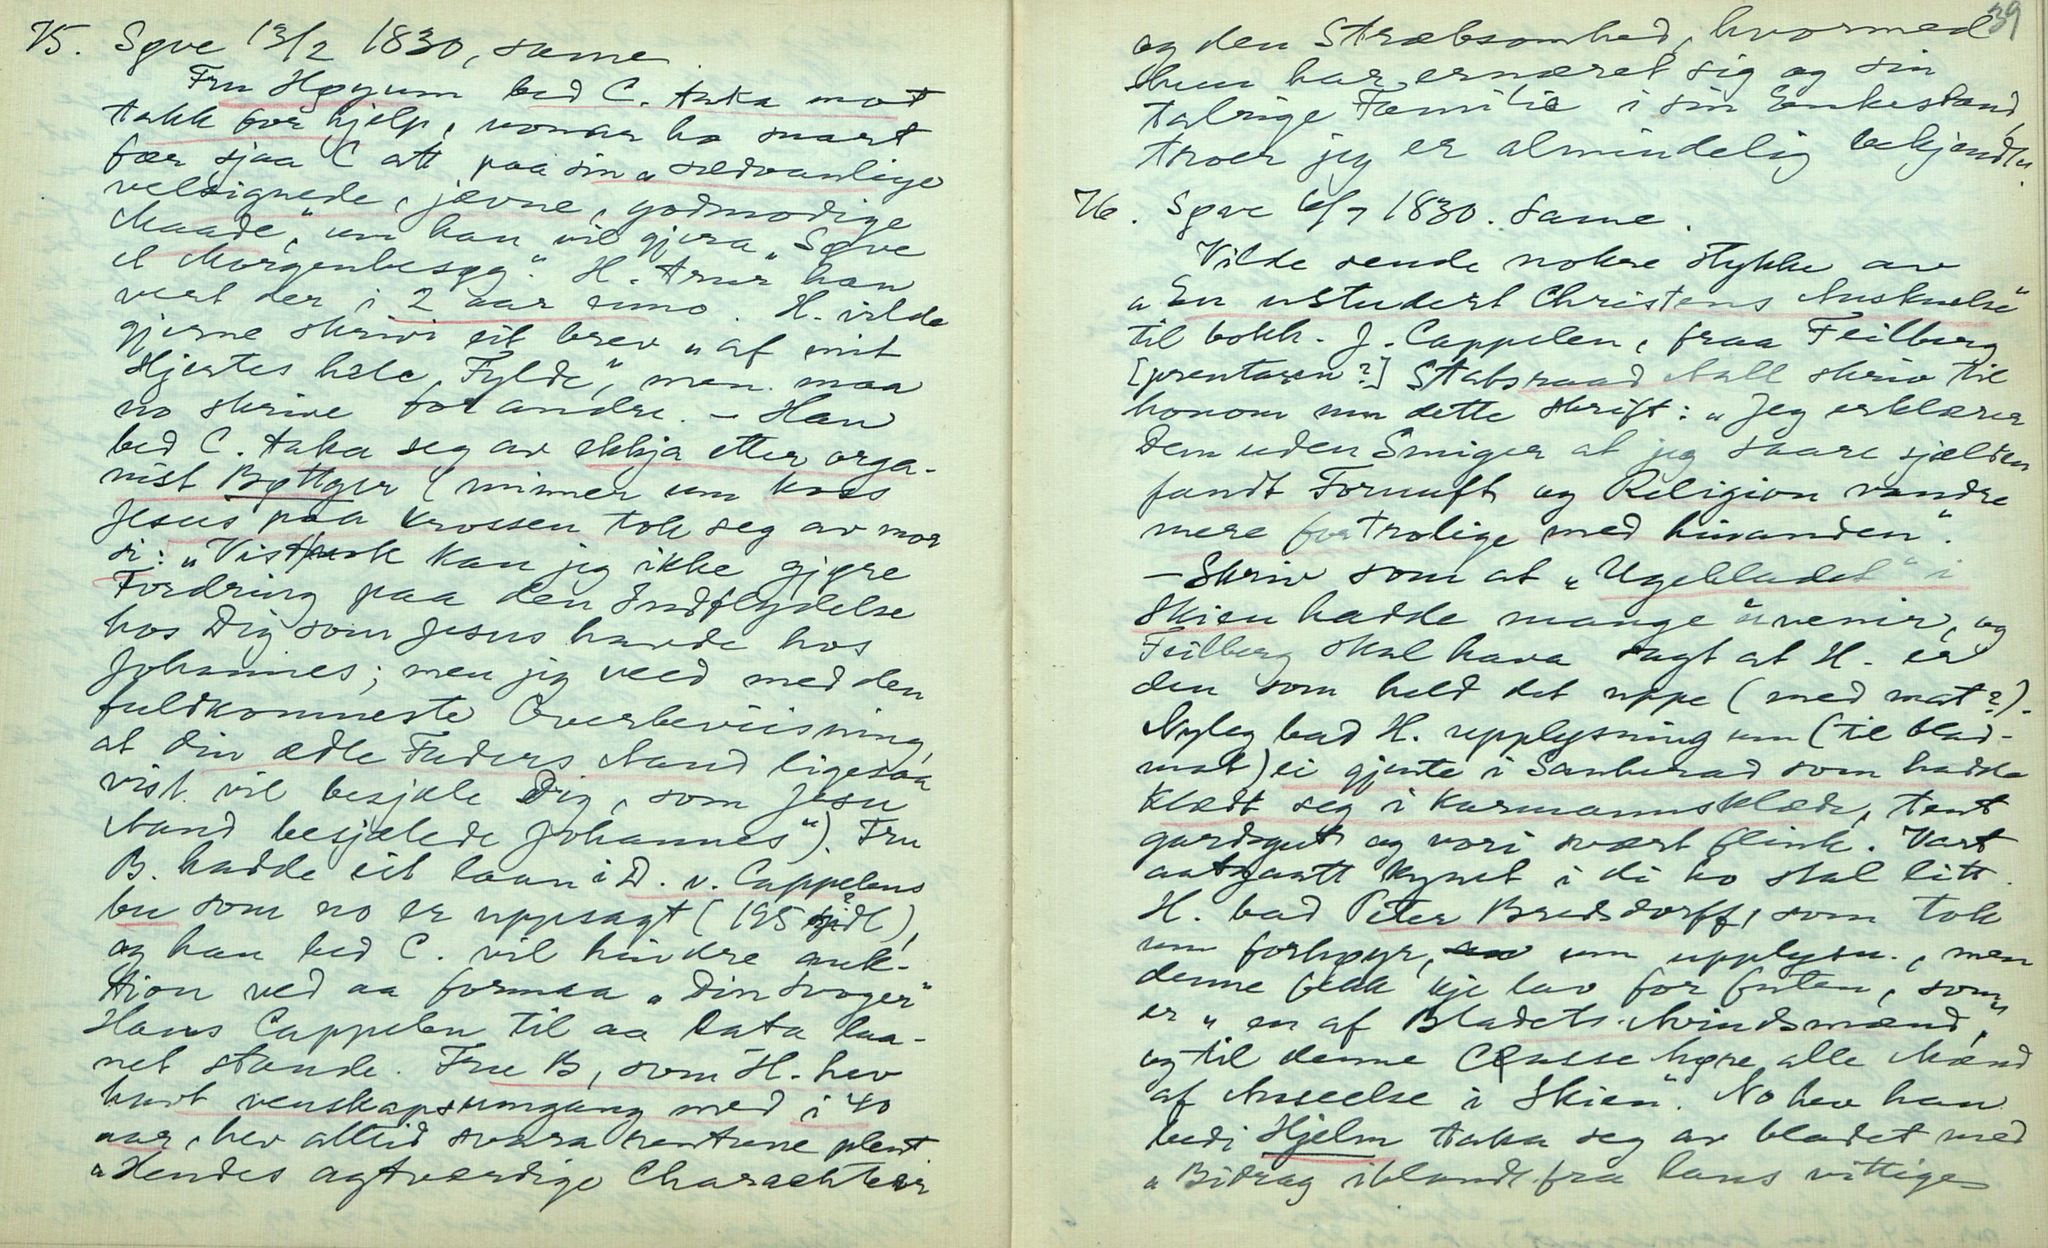 75. Søve 13/2 1830, same.
Fru Høyum bed C. taka mot
takk for hjelp, vonar ho snart
fær sjaa C att paa sin „sædvanlige
velsignede, jævne, godmodige
Maade", um han vil gjera „Søve
et Morgenbesøg". H. trur han
vert der i 2 aar enno. H. vilde
gjerne skrive eit brev „af mit
Hjertes hele Fylde", men maa
no skrive for andre. – Han
bed C. taka seg av ekkja etter orga-
nist Bøttger (minner um koss
Jesus paa krossen tok seg av mor
si: „Vist kan jeg ikke gjøre
Fordring paa den Indflydelse
hos Dig som Jesus havde hos
Johannes; men jeg veed med den
fuldkomneste Overbeviisning,
at din ædle Faders Aand ligesaa
vist vil besjæle Dig, som Jesu
Aand besjælede Johannes"). Fru
B. hadde eit laan i D. v. Cappelens
bu som no er uppsagt (195 spdl),
og han bed C. vil hindre auk-
tion ved aa formaa „Din Svoger"
Hans Cappelen til aa lata laa-
net stande. Fru B, som H. hev
havt venskapsumgang med i 40
aar, hev alltid svara rentene plent.
„Hendes agtværdige Charachteer
39
og den Stræbsomhed, hvormed
hun har ernæret sig og sin
talrige Familie i sin Enkestand,
troer jeg er almindelig bekjendt".
76. Søve 6/7 1830. Same.
Vilde sende nokre stykke av
„En ustudert Christens Anskuelse"
til bokh. J. Cappelen, fraa Feilberg
[prentaren?] Statsraad Aall skriv til
honom um dette skrift: „Jeg erklærer
Dem uden Smiger at jeg saare sjælden
fandt Fornuft og Religion vandre
mere fortrolige med hinanden".
– Skriv som at „Ugebladet" i
Skien hadde mange uvenir, og
Feilberg skal hava sagt at H. er
den som held det uppe (med mat?).
Nyleg bad H. upplysning um (til blad-
mat) ei gjente i Sauherad som hadde
klædt seg i karmannsklæde, tent
gardsgut og vori svært flink. Vart
aatgaatt kynet i di ho stal litt.
H. bad Peter Bredsdorff, som tok
um forhøyr, um upplysn., men
denne fekk ikje lov for futen, som
er „en af Bladets Avindsmænd",
og til denne Classe høre alle Mænd
af Anseelse i Skien". No hev han
bedi Hjelm taka seg av bladet med
„Bidrag iblandt fra hans vittige